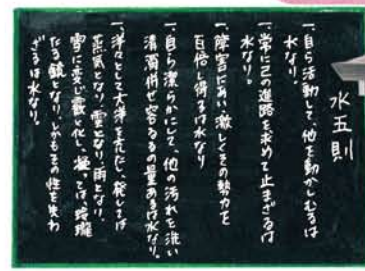 水五則
一、自ら活動して、他を動かしむるは
水なり。
一、常に己の進路を求めて止まざるは
水なり。
一、障害にあい、激しくその勢力を
百倍し得るは水なり
一、自ら潔らかにして、他の汚れを洗い
清濁併せ容るるの量あるは水なり。
一、洋々として大洋を充たし、発しては
蒸気となり、雲となり、雨となり、
雪に変じ霰と化し、凝っては、玲瓏
たる鏡となり、しかもその性を失わ
ざるは水なり。